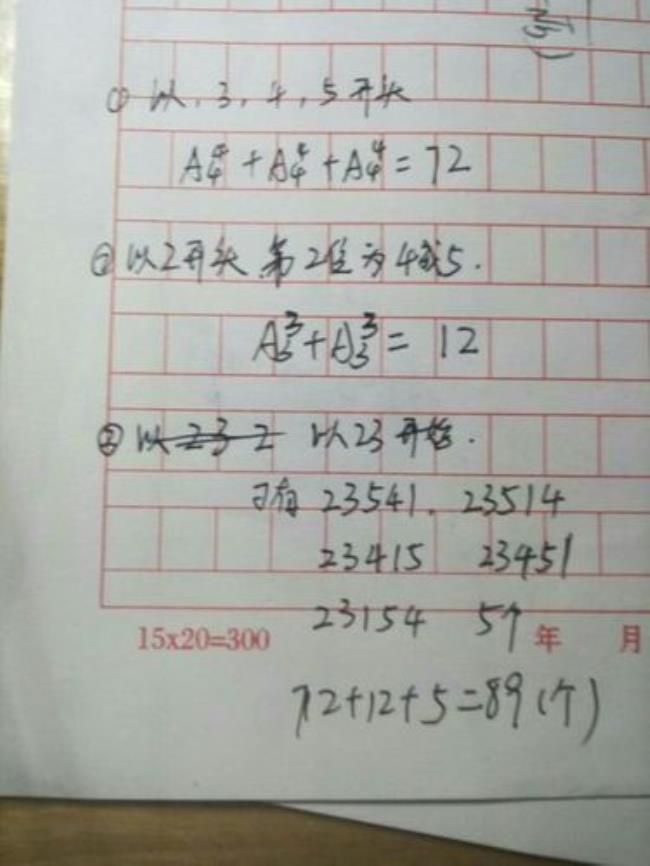 ① 以, 3, 4, 5 开头
A₄⁴ + A₄⁴ + A₄⁴ = 72
② 以2开头 第2位为4或5.
A₃³ + A₃³ = 12
③ 以 23 2 以23开始.
可有 23541. 23514
23415 23451
23154 5个
15x20=300 年 月
72+12+5=89(个)